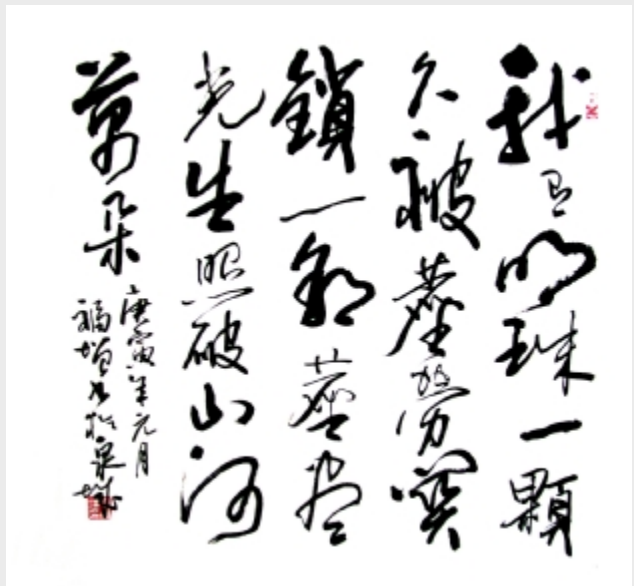 我有明珠一顆
久被塵勞関
鎖一朝塵盡
光生照破山河
萬朵
庚寅年元月
福增书於泉城